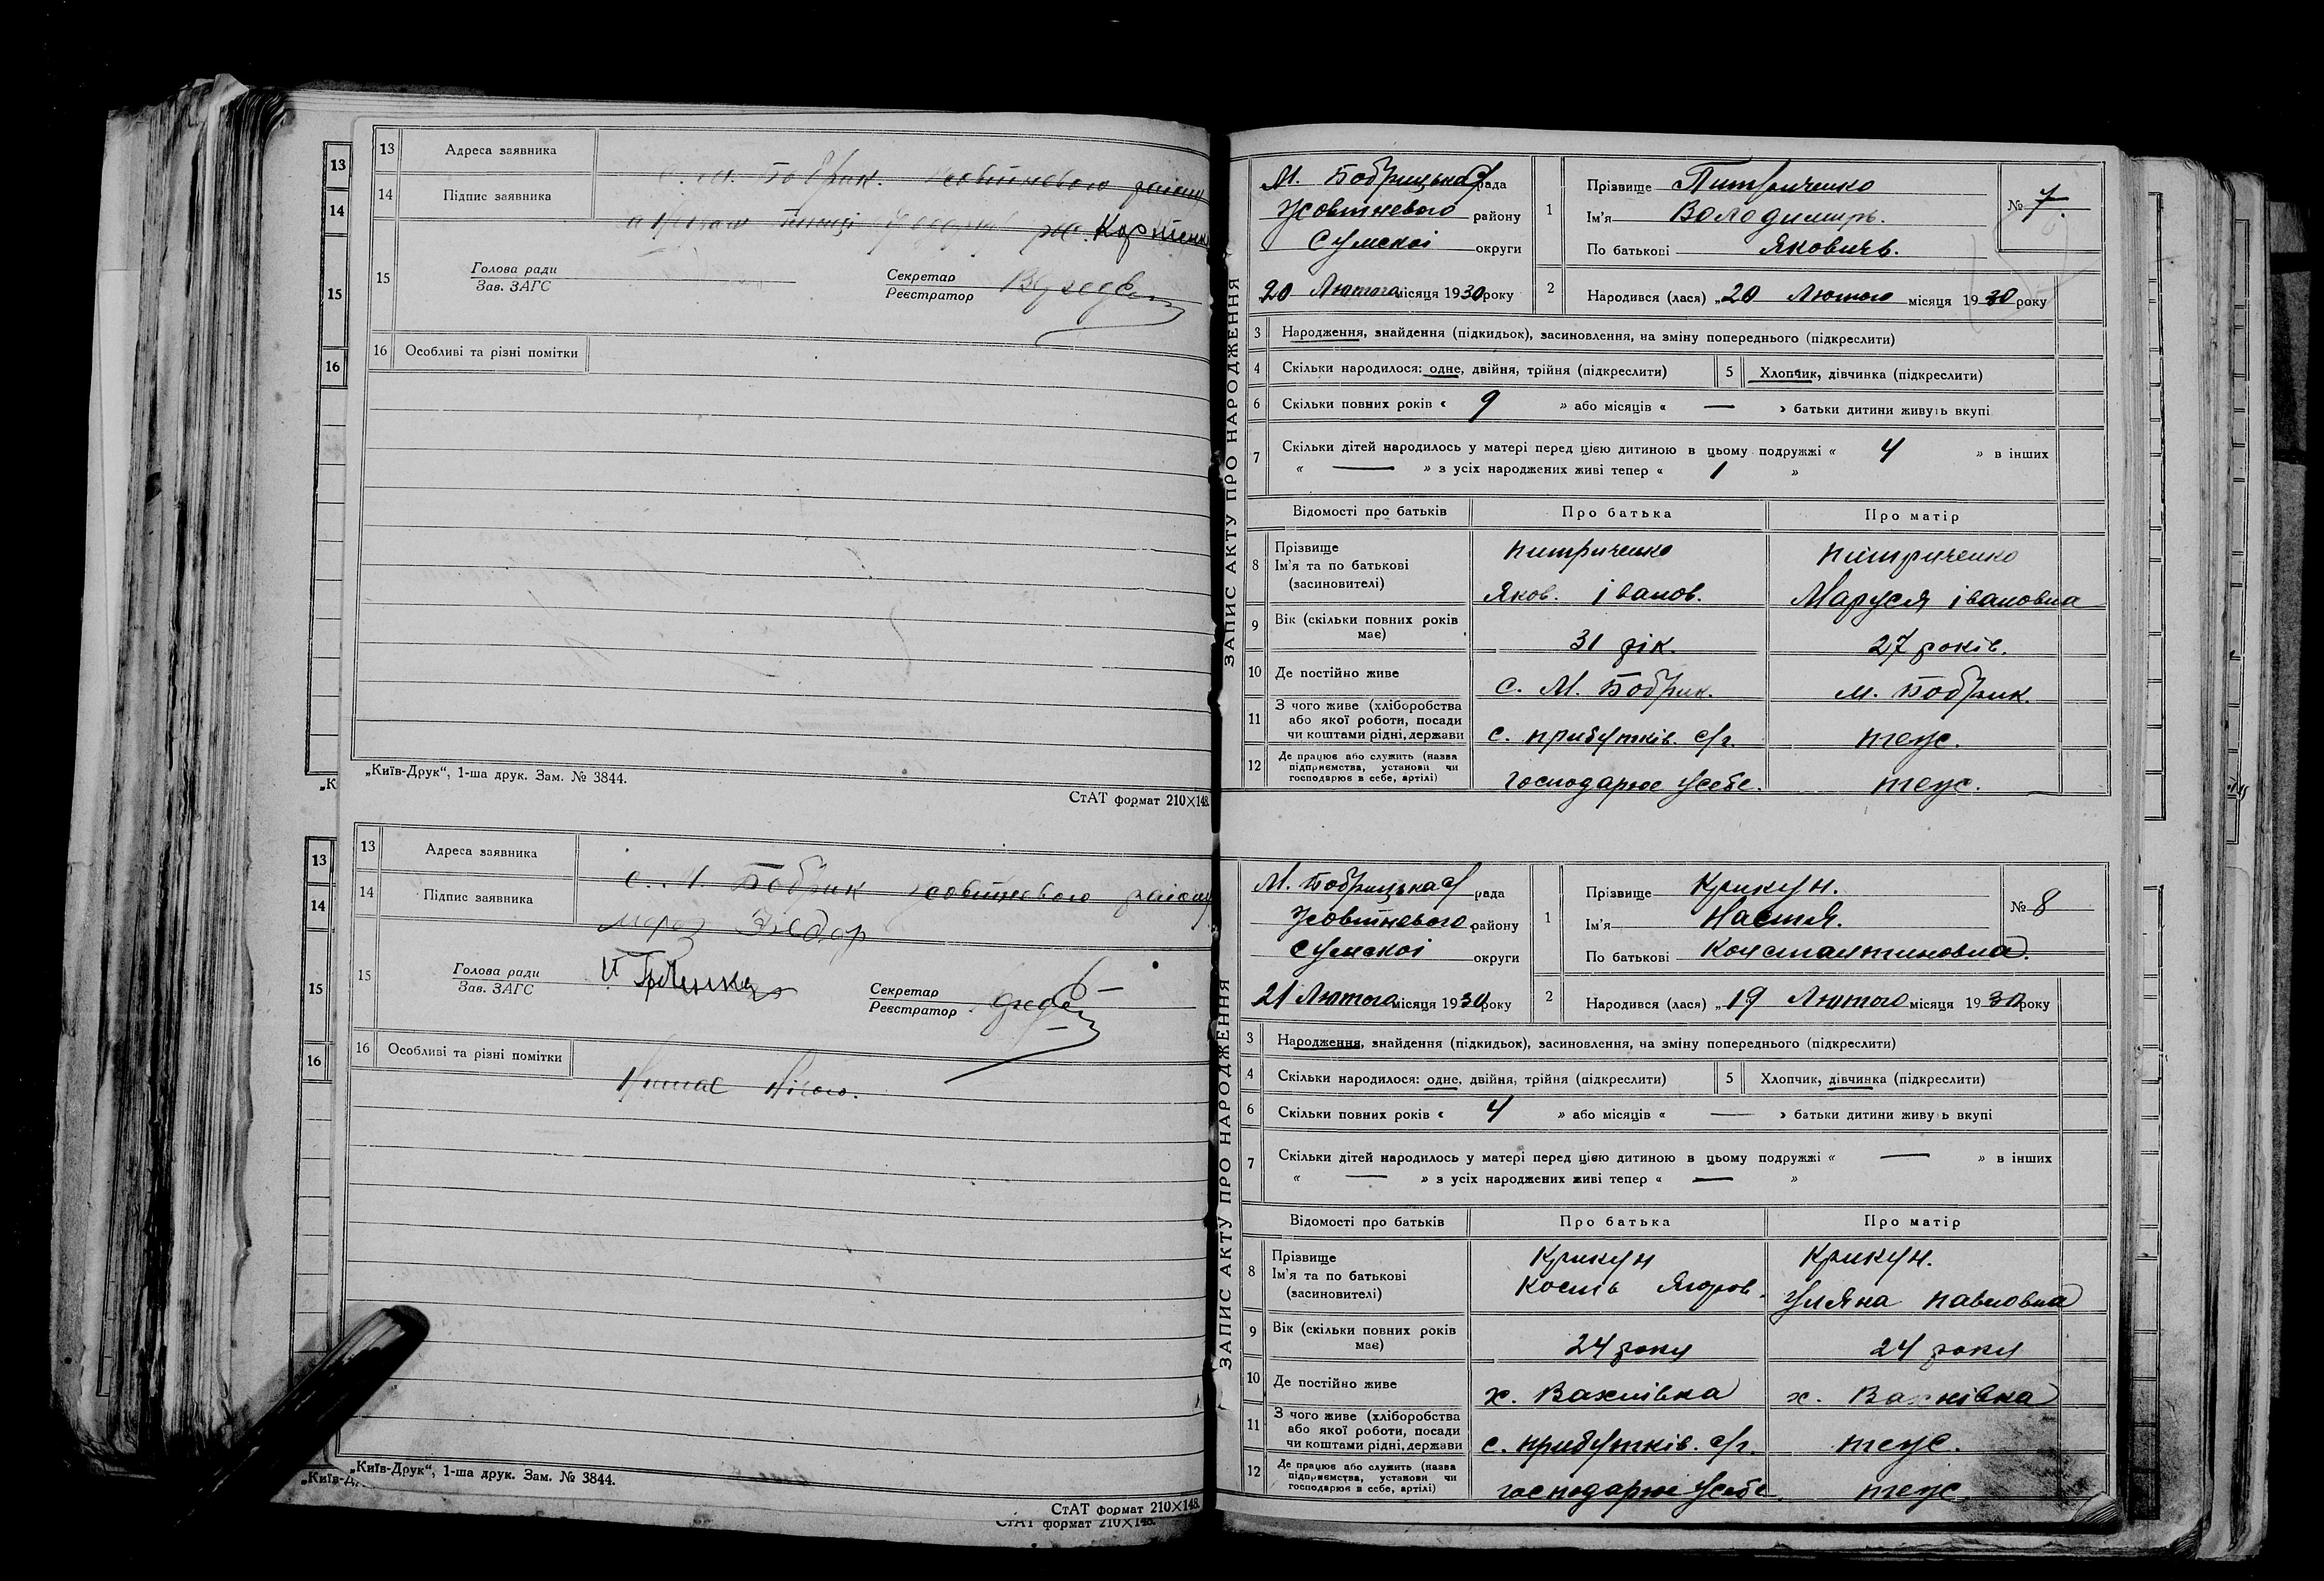 13 Адреса заявника с. М. Бобрик. Жовтневого району
14 Підпис заявника
Кортенк
15 Голова ради
Зав. ЗАГС
Секретар
Реєстратор
16 Особливі та різні помітки
„Київ-Друк“, 1-ша друк. Зам. № 3844.
СтАТ формат 210×148.
13 Адреса заявника с. М. Бобрик Жовтневого району
14 Підпис заявника мороз
15 Голова ради
Зав. ЗАГС
Секретар
Реєстратор
16 Особливі та різні помітки
Немає нічого.
„Київ-Друк“, 1-ша друк. Зам. № 3844.
СтАТ формат 210×148.
СтАТ формат 210×148.
13
14
15
16
„К
13
14
15
16
„Київ-Д
ЗАПИС АКТУ ПРО НАРОДЖЕННЯ
М. Бобрицька с/рада
Жовтневого району
Сумскоі округи
20 Лютого місяця 1930 року
1 Прізвище Питриченко
Ім'я Володимирь.
По батькові Яковичь.
№ 7.
2 Народився (лася) „20 Лютого місяця 1930 року
3 Народження, знайдення (підкидьок), засиновлення, на зміну попереднього (підкреслити)
4 Скільки народилося: одне, двійня, трійня (підкреслити) 5 Хлопчик, дівчинка (підкреслити)
6 Скільки повних років « 9 » або місяців « — » батьки дитини живуть вкупі
7 Скільки дітей народилось у матері перед цією дитиною в цьому подружжі « 4 » в інших
« — » з усіх народжених живі тепер « 1 »
Відомості про батьків Про батька Про матір
8 Прізвище питриченко питриченко
Ім'я та по батькові
(засиновителі) Яков. іванов. Маруся івановна
9 Вік (скільки повних років
має) 31 рік. 27 років.
10 Де постійно живе с. М. Бобрик. м. Бобрик.
11 З чого живе (хліборобства
або якої роботи, посади
чи коштами рідні, держави с. прибутків. с/г. теж.
12 Де працює або служить (назва
підприємства, установи чи
господарює в себе, артілі) господарює усебе. теж.
ЗАПИС АКТУ ПРО НАРОДЖЕННЯ
М. Бобрицька с/рада
Жовтневого району
Сумскоі округи
21 Лютого місяця 1930 року
1 Прізвище Крикун.
Ім'я Настя.
По батькові Константиновна.
№ 8
2 Народився (лася) „19 Лютого місяця 1930 року
3 Народження, знайдення (підкидьок), засиновлення, на зміну попереднього (підкреслити)
4 Скільки народилося: одне, двійня, трійня (підкреслити) 5 Хлопчик, дівчинка (підкреслити)
6 Скільки повних років « 4 » або місяців « — » батьки дитини живуть вкупі
7 Скільки дітей народилось у матері перед цією дитиною в цьому подружжі « — » в інших
« — » з усіх народжених живі тепер « — »
Відомості про батьків Про батька Про матір
8 Прізвище Крикун Крикун.
Ім'я та по батькові
(засиновителі) Кость Ягоров. Уляна павловна
9 Вік (скільки повних років
має) 24 роки 24 роки
10 Де постійно живе х. Вахнівка х. Вахнівка
11 З чого живе (хліборобства
або якої роботи, посади
чи коштами рідні, держави с. прибутків. с/г. теж.
12 Де працює або служить (назва
підприємства, установи чи
господарює в себе, артілі) господарює усебе. теж.